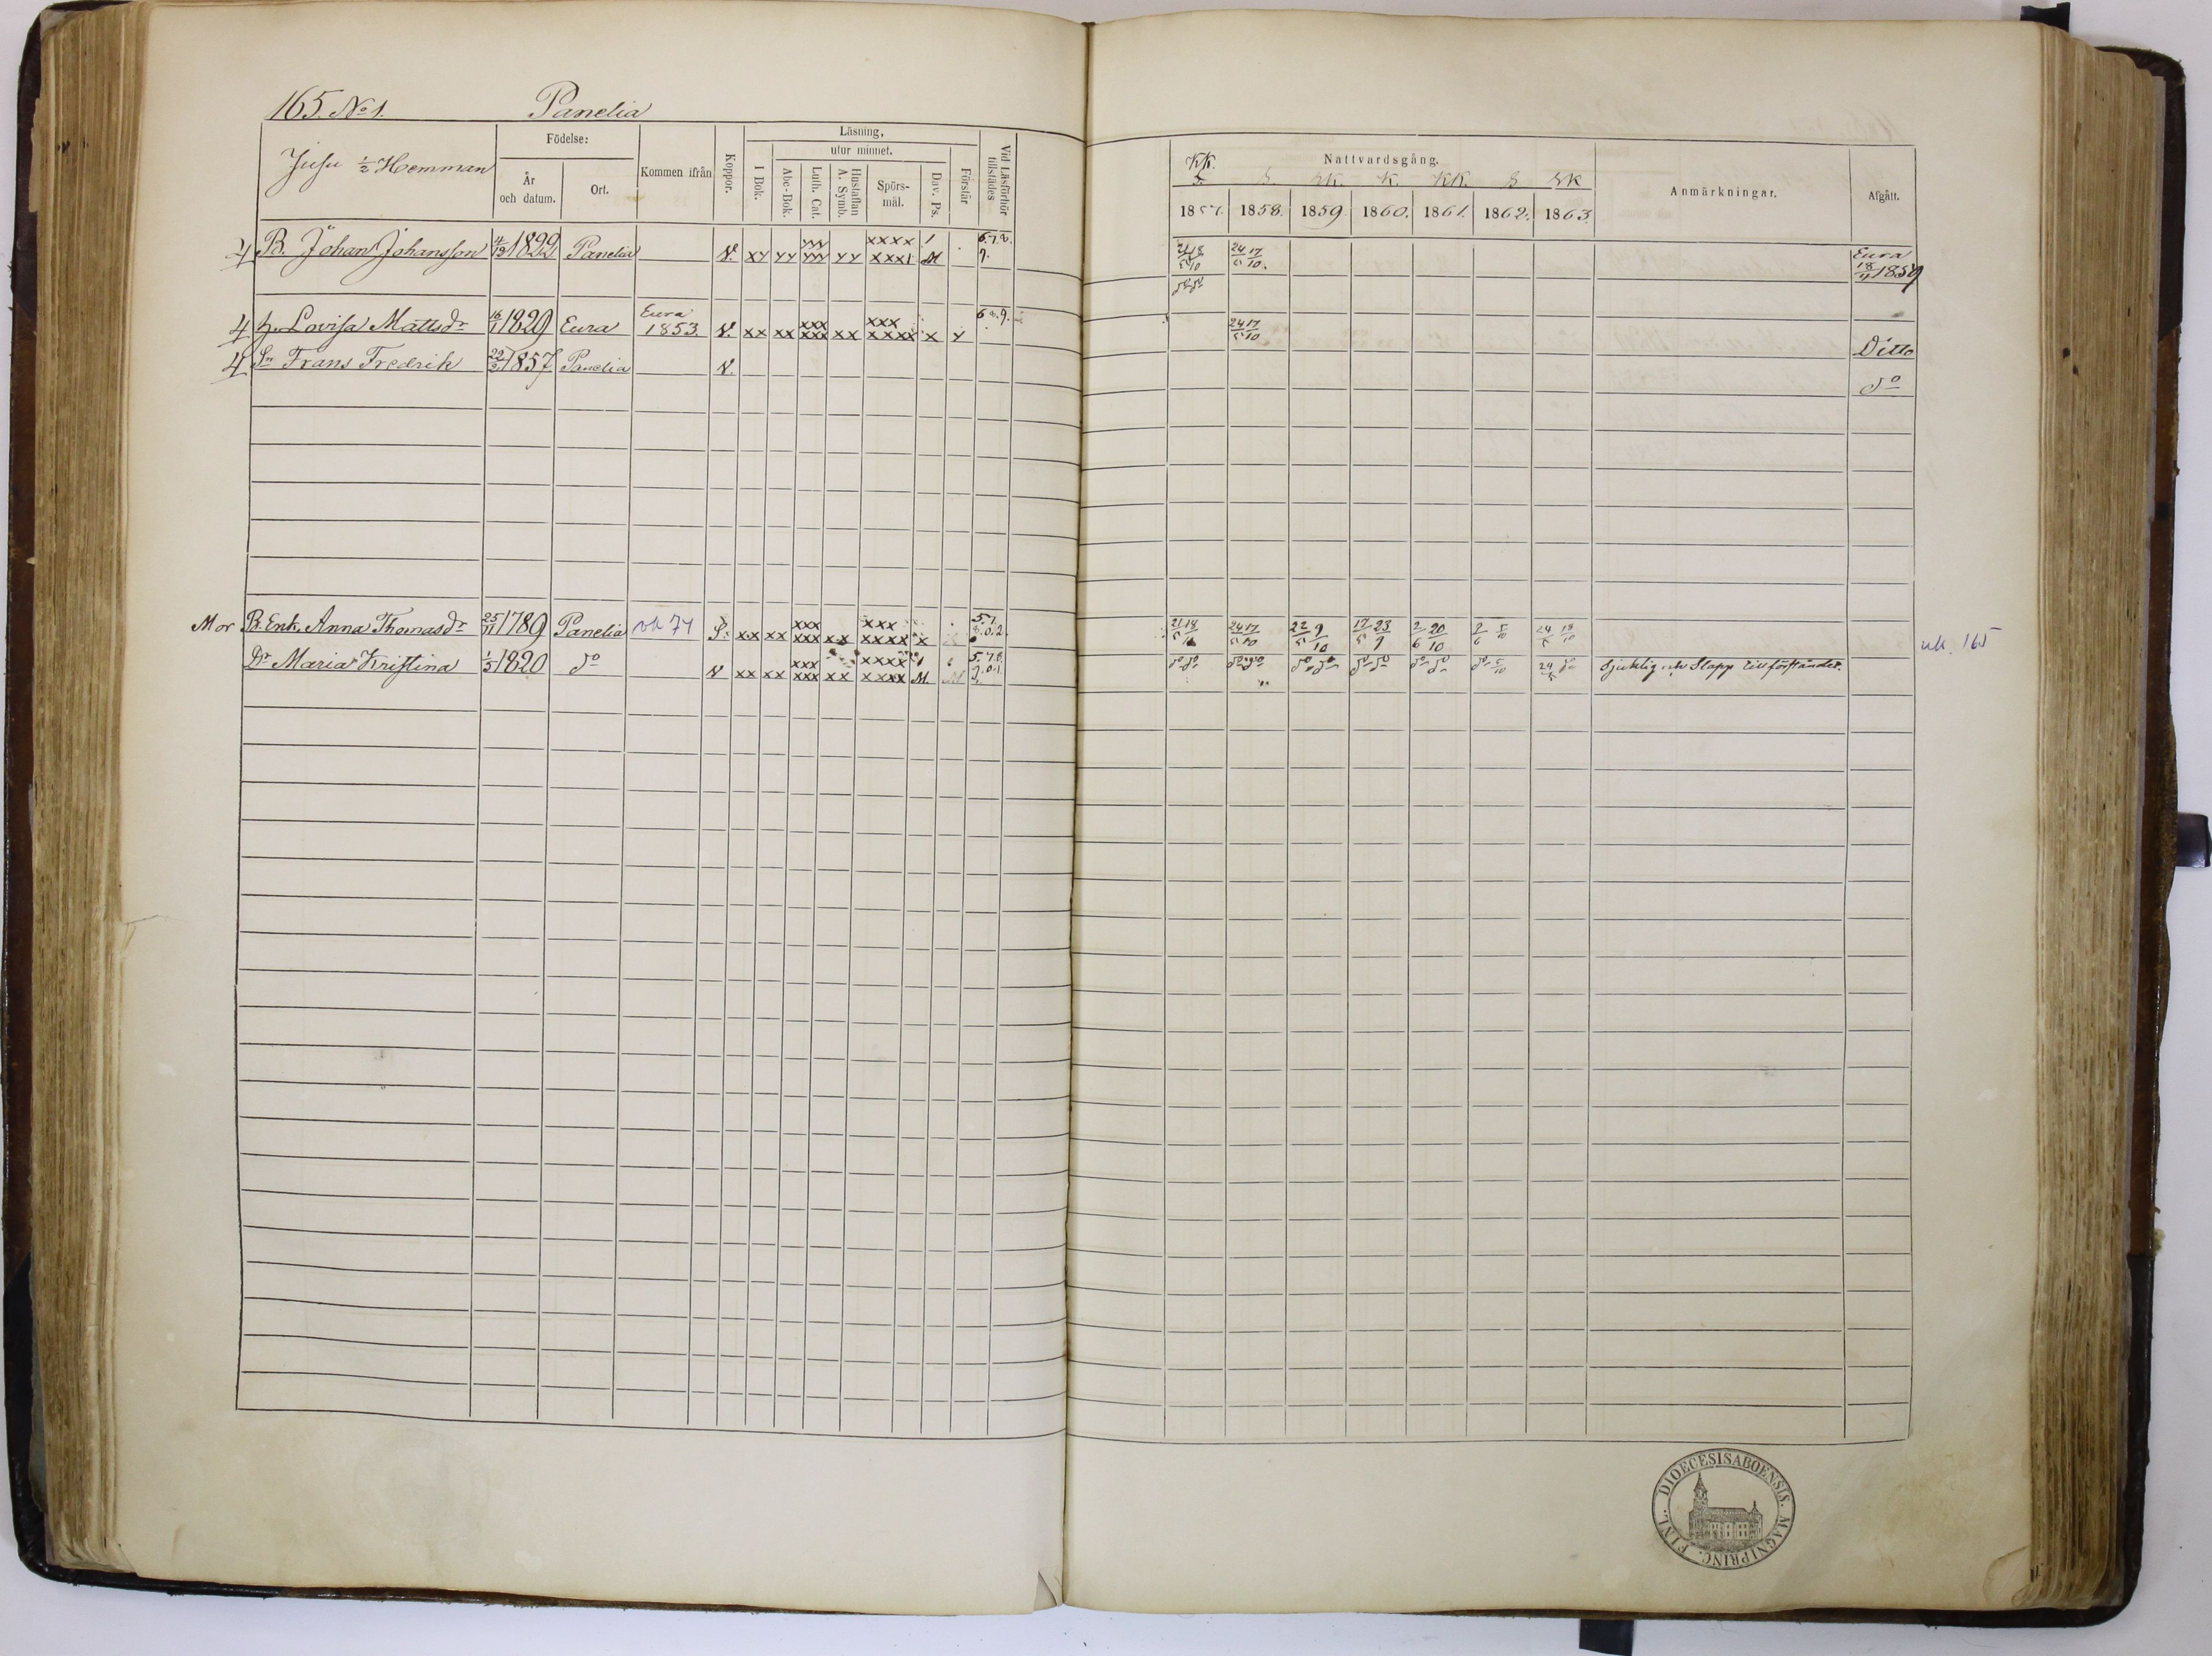 165. No 1. Panelia
Juſu 1/2 Hemman
Födelse:
År och datum.
Ort.
Kommen ifrån
Koppor.
Läsning,
utur minnet.
I Bok.
Abc-Bok.
Luth. Cat.
Hustaflan A. Symb.
Spörs-mål.
Dav. Ps.
Förstår
Vid Läsförhör tillstädes
KK.
Nattvardsgång.
1857. 1858. 1859. 1860. 1861. 1862. 1863.
Anmärkningar.
Afgått.
B. Johan Johansſon 4/12 1822 Panelia v. 6.7.8. 9. 24 17/5 10. Eura 18/4 1859
h. Lovisa Mattsdr 16/1 1829 Eura Eura 1853. v. xx xx xxx xxx xx xxx xxxx x 6 8. 9. 24 17/5 10 Ditto
Sn Frans Fredrik 1857 Panelia v. do
Mor B. Enk. Anna Thomasdr 25/11 1789 Panelia rk 74 S. xx xx xxx xxx xx xxx xxxx x 5.7. 8.0.2. 21 18 24 17/5 10 22 9/5 10 17 23/5 9 2 20/6 10 2/6 5/10 24 18/5 10 uk. 165
Dr Maria Kristina 1/5 1820 do v xx xx xxx xxx xx xxxx xxxx M. M 5.7.8. 9.0.1. do do do do do do do do do do do 5/10 24/5 do Sjuklig och Slapp till förståndet.
DIOECESIS ABOENSIS. MAGNI PRINC. FINL.